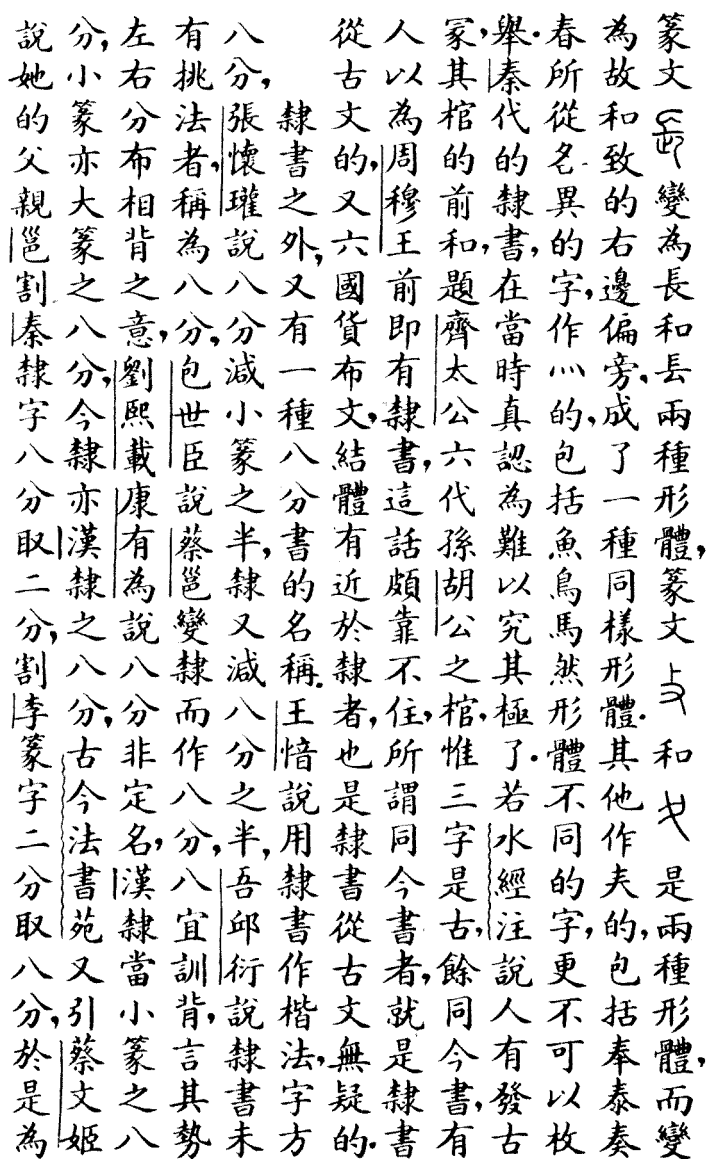 篆文變為長和镸兩種形體，篆文和是兩種形體，而變
為故和致的右邊偏旁，成了一種同樣形體．其他作𡗗的，包括奉泰奏
春所從各異的字，作灬的，包括魚鳥馬然形體不同的字，更不可以枚
舉．秦代的隸書，在當時真認為難以究其極了．若水經注說人有發古
冢，其棺的前和，題齊太公六代孫胡公之棺，惟三字是古，餘同今書，有
人以為周穆王前即有隸書，這話頗靠不住，所謂同今書者，就是隸書
從古文的，又六國貨布文，結體有近於隸者，也是隸書從古文無疑的．
隸書之外，又有一種八分書的名稱．王愔說用隸書作楷法，字方
八分，張懷瓘說八分減小篆之半，隸又減八分之半，吾邱衍說隸書未
有挑法者，稱為八分，包世臣說蔡邕變隸而作八分，八宜訓背，言其勢
左右分布相背之意，劉熙載康有為說八分非定名，漢隸當小篆之八
分，小篆亦大篆之八分，今隸亦漢隸之八分，古今法書苑又引蔡文姬
說她的父親邕割秦隸字八分取二分，割李篆字二分取八分，於是為